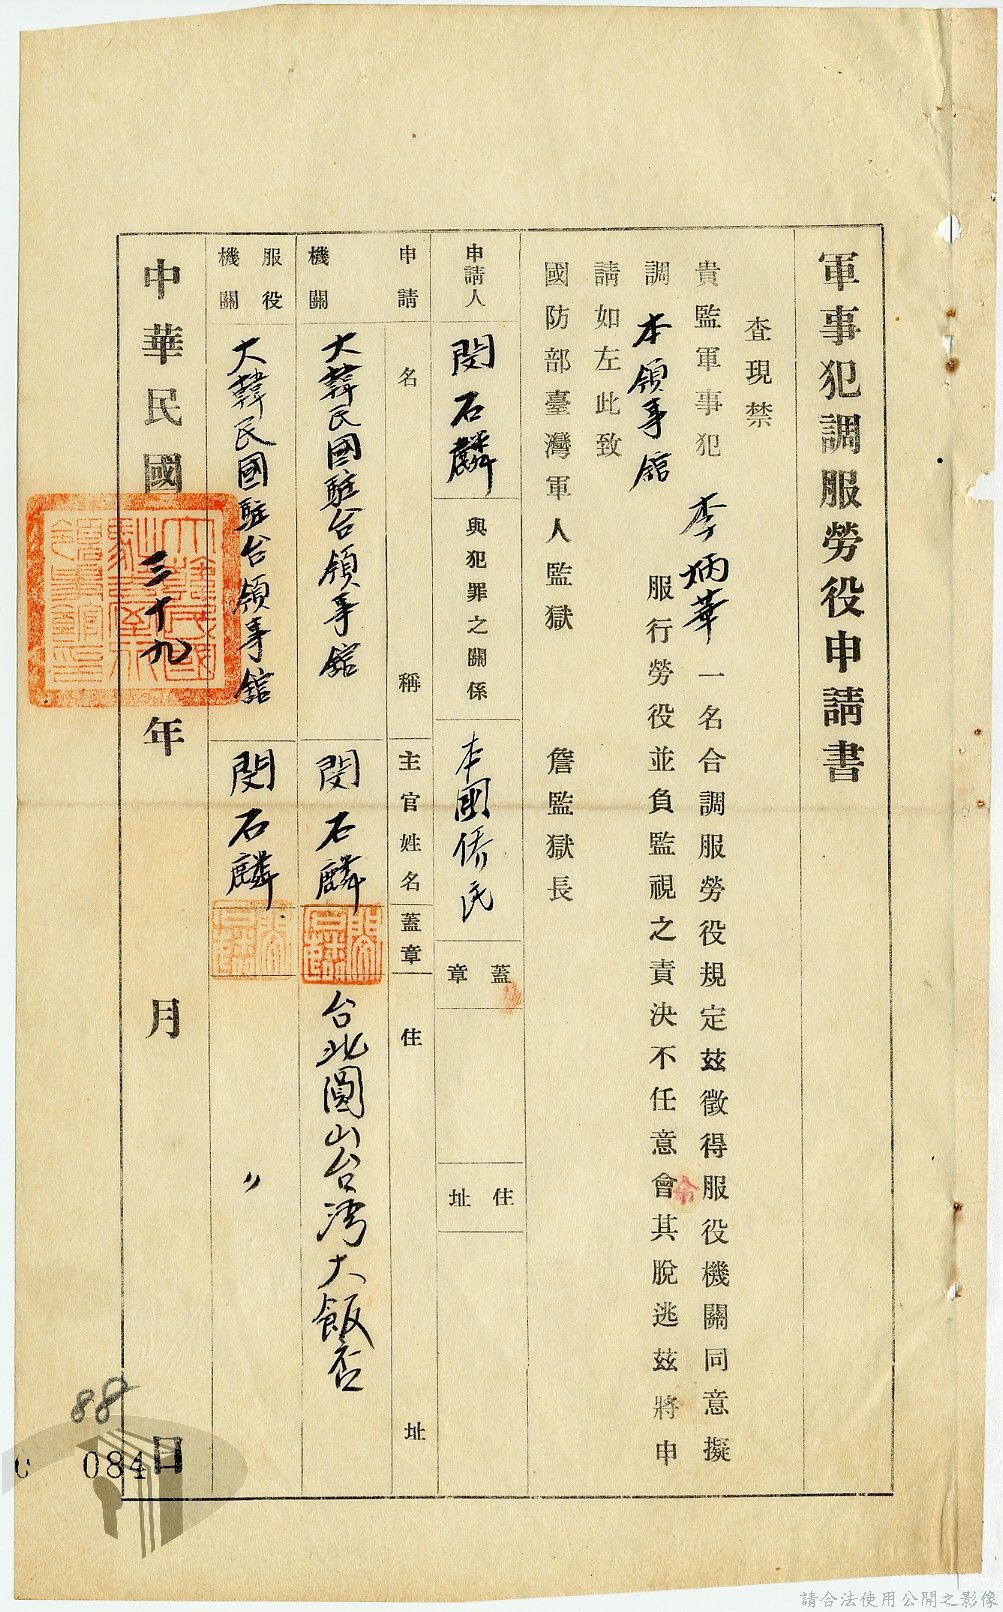 軍事犯調服勞役申請書
查現禁
貴監軍事犯 李炳華 一名合調服勞役規定茲徵得服役機關同意擬
調 本領事舘 服行勞役並負監視之責決不任意會其脫逃茲將申
令
請如左此致
國防部臺灣軍人監獄 詹監獄長
申請人 閔石麟 與犯罪之關係 本國僑民 蓋章 住址
申請機關 名稱 主官姓名 蓋章 住址
大韓民國駐台領事舘 閔石麟 台北圓山台湾大飯店
服役機關 大韓民國駐台領事舘 閔石麟 〃
中華民國 三十九 年 月 日
88
084
請合法使用公開之影像